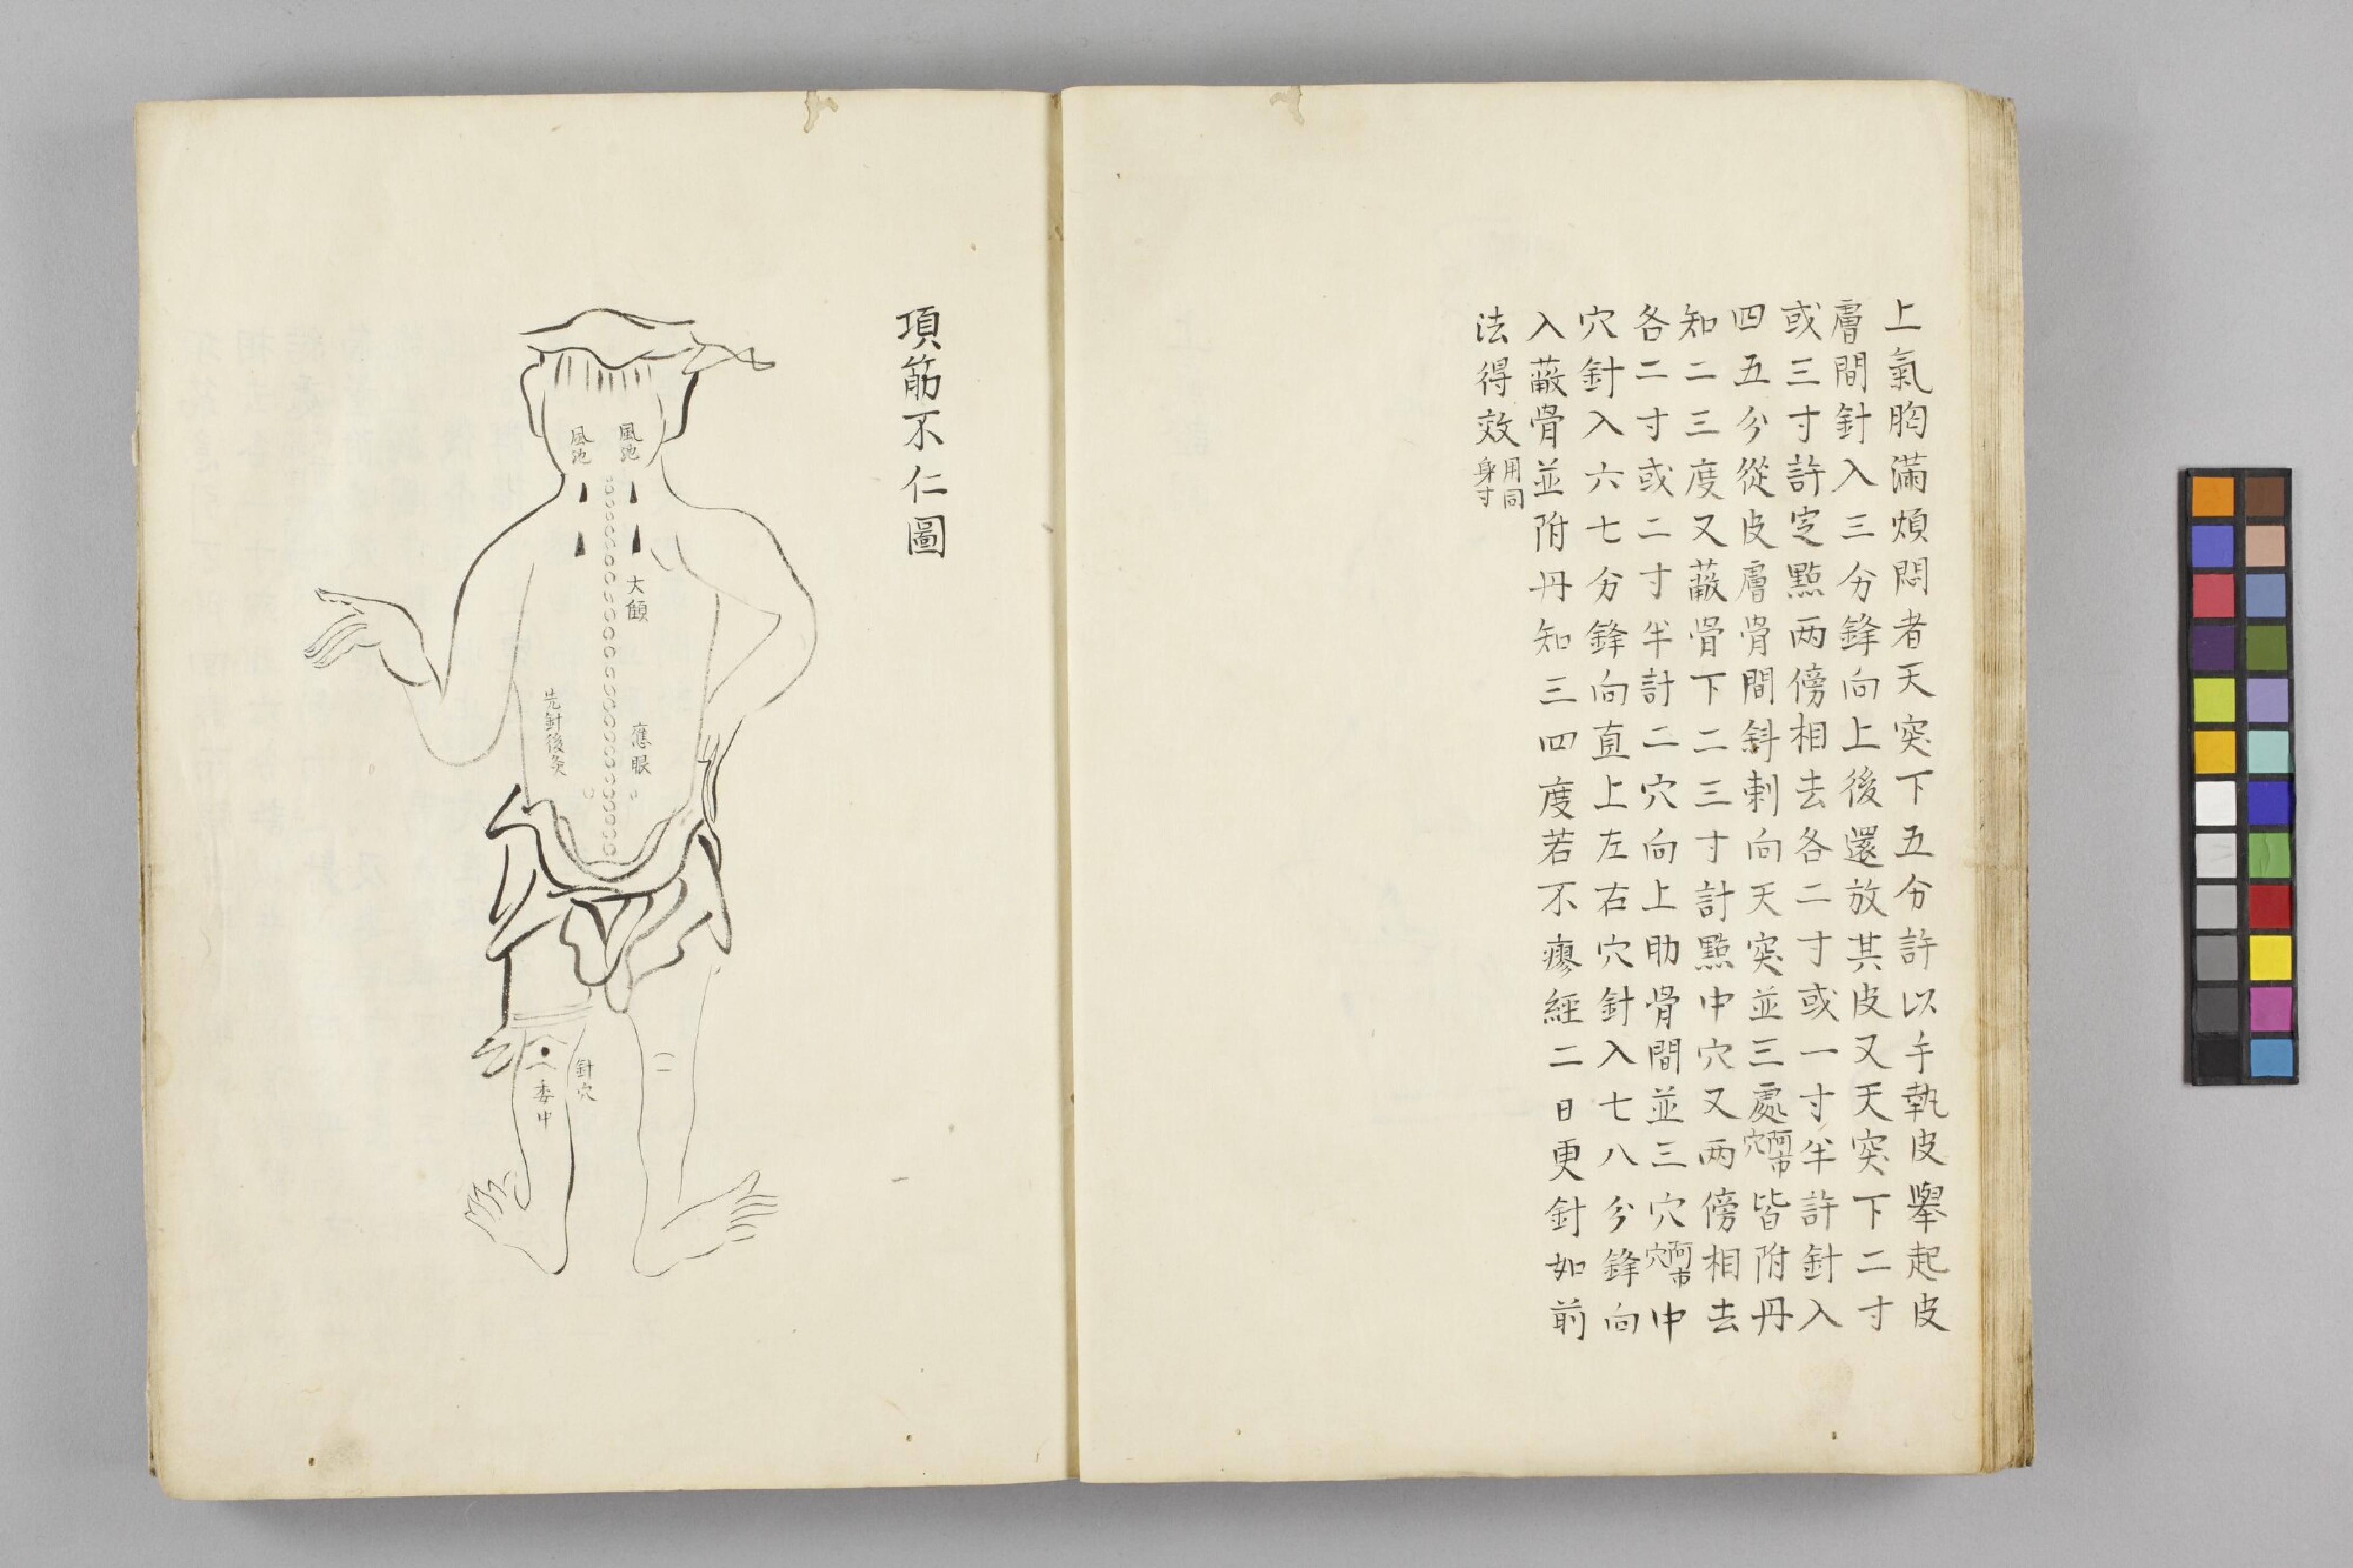 上氣胸滿煩悶者天突下五分許以手執皮舉起皮
膚間針入三分鋒向上後還放其皮又天突下二寸
或三寸許定點两傍相去各二寸或一寸半許針入
四五分從皮膚骨間斜刺向天突並三處阿市穴皆附丹
知二三度又蔽骨下二三寸計點中穴又两傍相去
各二寸或二寸半計二穴向上肋骨間並三穴阿市穴中
穴針入六七分鋒向直上左右穴針入七八分鋒向
入蔽骨並附丹知三四度若不瘳經二日更針如前
法得效用同身寸
項筋不仁圖
風池
風池
大顀
應眼
先針後灸
針穴
委中